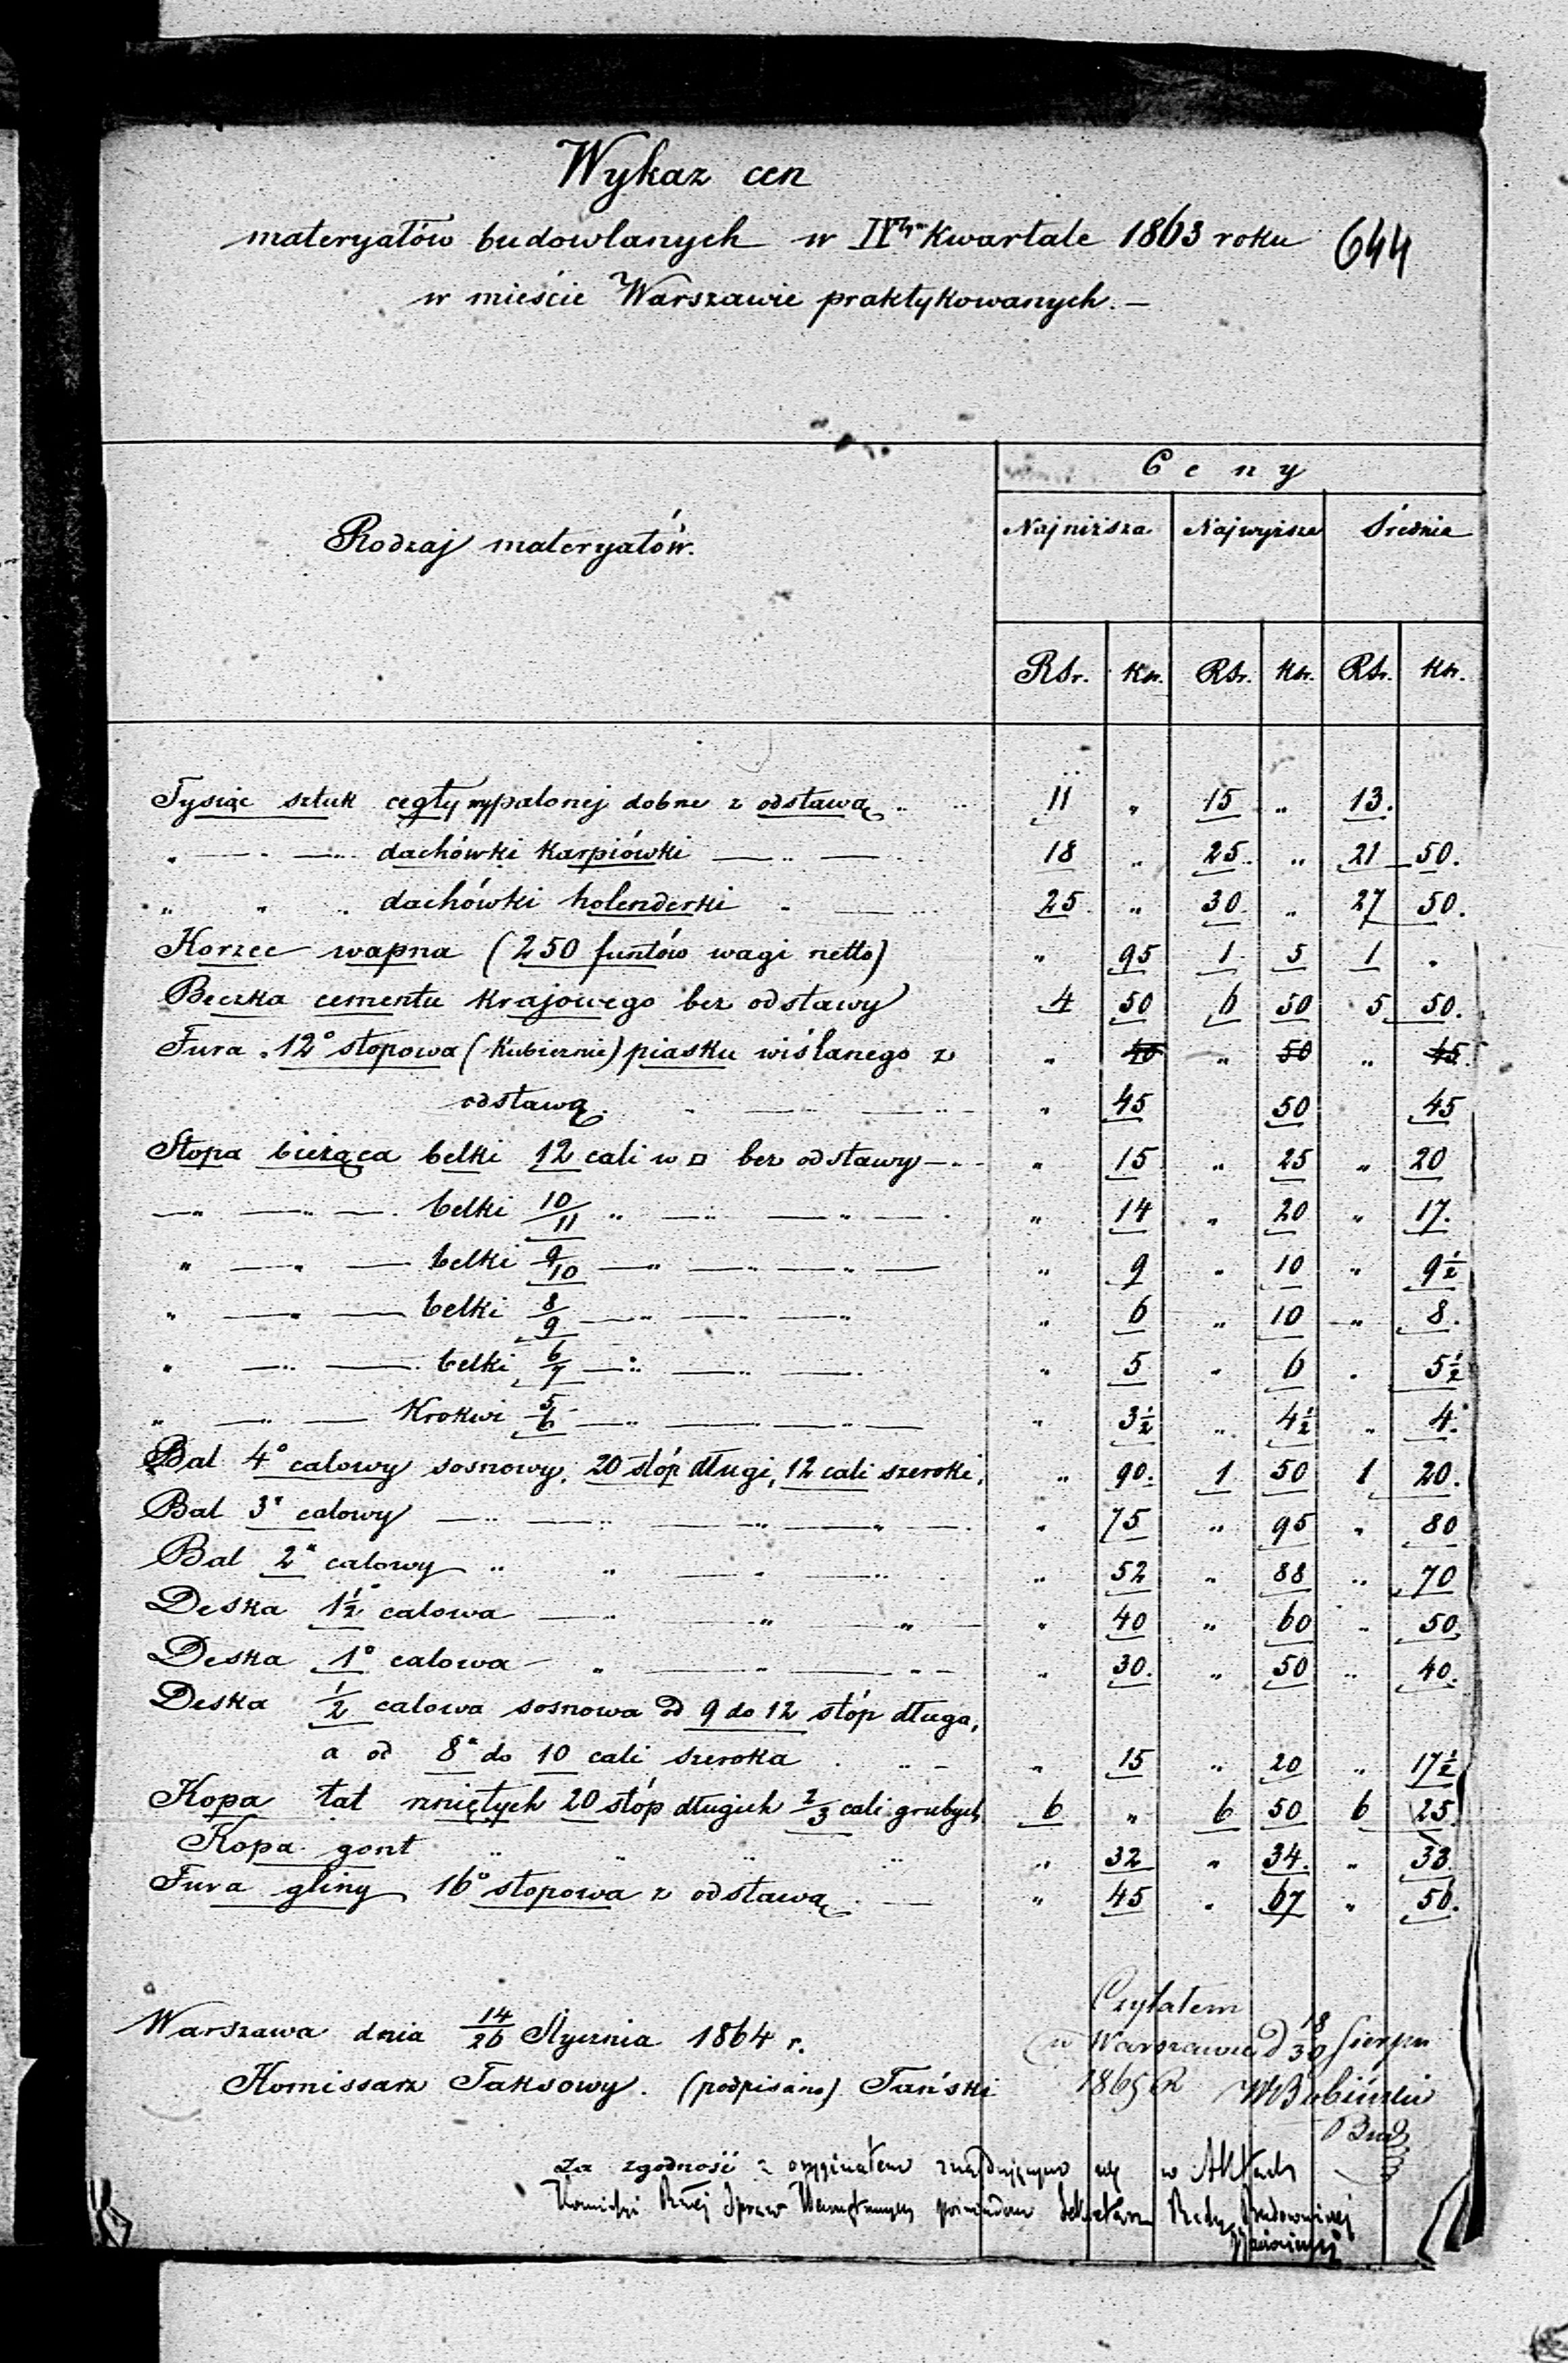 Wykaz cen
materyałów budowlanych w IV Kwartale 1863 roku 644
w mieście Warszawie praktykowanych. —
Rodzaj materyałów.
Ceny
Najniższa Najwyższa Średnia
RSr. Kp. RSr. Kp. RSr. Kp.
Tysiąc sztuk cegły wypalonej dobrze z odstawą 11 „ 15 „ 13.
„ — „ — dachówki karpiówki — „ — 18 „ 25 „ 21 50.
„ „ „ dachówki holenderki „ — 25 „ 30 „ 27 50.
Korzec wapna (250 funtów wagi netto) „ 95 1 5 1 „
Beczka cementu krajowego bez odstawy 4 50 6 50 5 50.
Fura 12° stopowa (kubicznie) piasku wiślanego z „ 40 „ 50 „ 45.
odstawą. „ 45 50 45
Stopa bieżąca belki 12 cali w □ bez odstawy „ 15 „ 25 „ 20
— „ — „ — belki 10/11 „ — „ — „ — „ 14 „ 20 „ 17.
„ — „ — belki 9/10 — „ — „ — „ — „ 9 „ 10 „ 9½
„ — „ — belki 8/9 — „ — „ — „ „ 6 „ 10 „ 8.
„ — „ — belki 6/7 — „ — „ — „ 5 „ 6 „ 5½
„ — „ — Krokwi 5/6 — „ — „ — „ — „ 3½ „ 4½ „ 4.
Bal 4° calowy sosnowy, 20 stóp długi, 12 cali szeroki, „ 90. 1 50 1 20.
Bal 3" calowy — „ — „ — „ — „ — „ 75 „ 95 „ 80
Bal 2" calowy „ „ — „ — „ „ 52 „ 88 „ 70
Deska 1½" calowa — „ — „ — „ — „ 40 „ 60 „ 50
Deska 1° calowa „ — „ — „ — „ 30. „ 50 „ 40.
Deska ½ calowa sosnowa od 9 do 12 stóp długa,
a od 8" do 10 cali szeroka „ 15 „ 20 „ 17½
Kopa łat rzniętych 20 stóp długich 2/3 cali grubych 6 „ 6 50 6 25.
Kopa gont „ „ „ „ „ 32 „ 34. „ 33.
Fura gliny 16° stopowa z odstawą — „ 45 „ 67 „ 56.
Warszawa dnia 14/26 Stycznia 1864 r.
Komissarz Taksowy. (podpisano) Tański
Czytałem
w Warszawie d 18/30 Sierpn
1865 R
Bud
Za zgodność z oryginałem znajdującym się w Aktach
Komissi Rząd Spraw Wewnętrznych poświadcza Sekretarz Rady Budowniczej